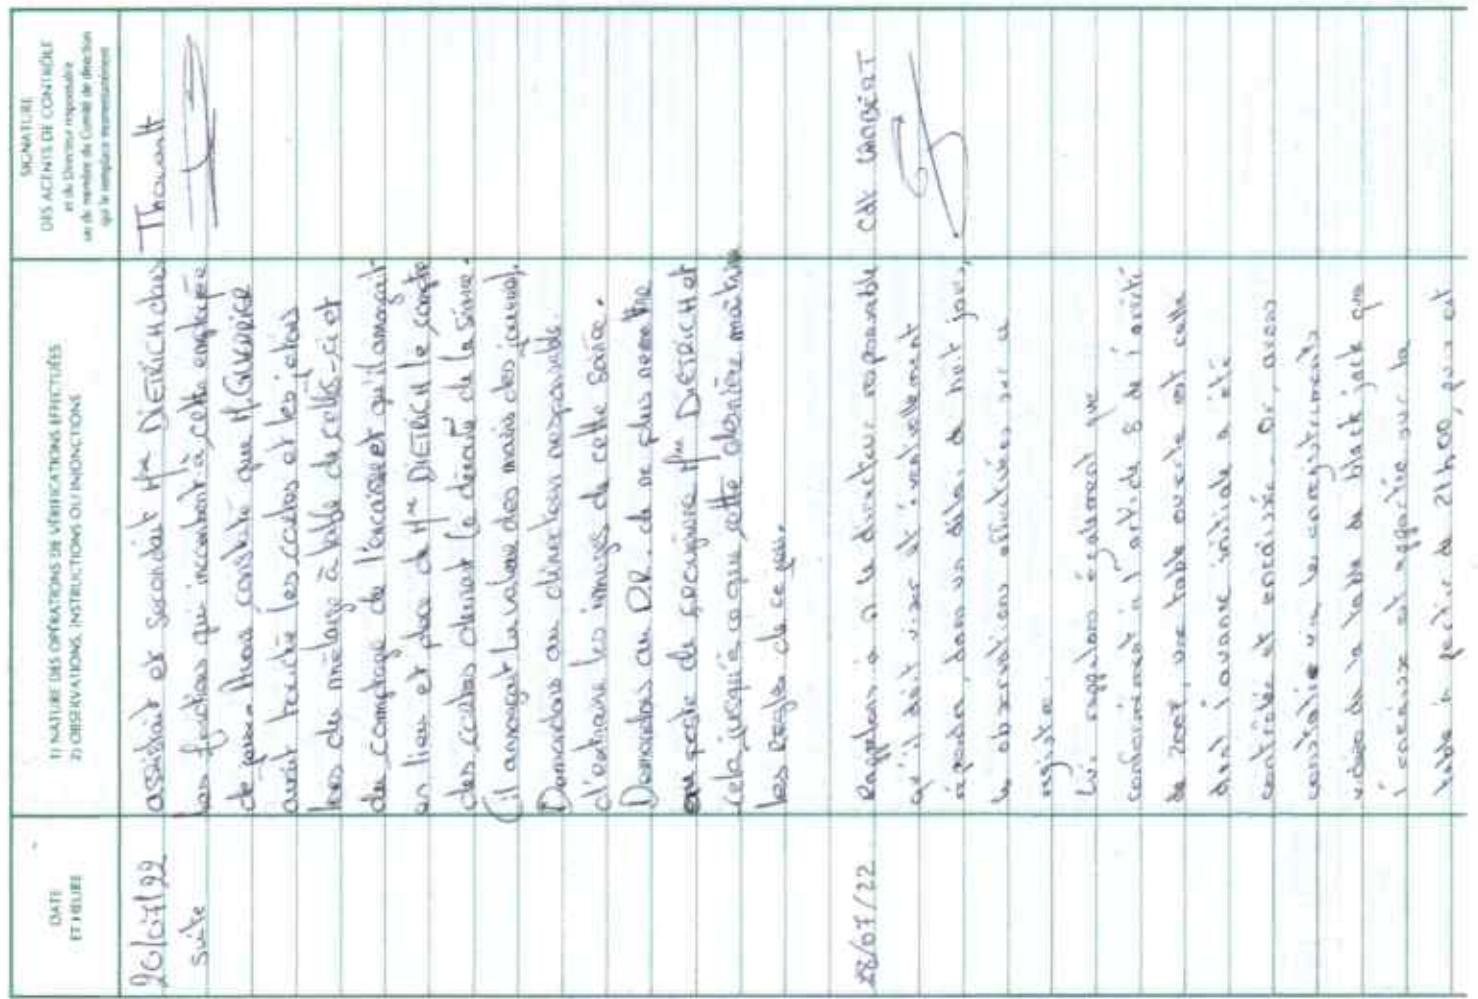 DATE
ET HEURE
1) NATURE DES OPÉRATIONS DE VÉRIFICATIONS EFFECTUÉES
2) OBSERVATIONS, INSTRUCTIONS OU INJONCTIONS
SIGNATURE
DES AGENTS DE CONTRÔLE
et du Directeur responsable
ou de membre du Comité de direction
qui le remplace momentanément
20/07/22
suite
assistait et secondait Mme DIETRICH dans
les fonctions qui incombent à cette employée
de jeux. Avons constaté que M.
avait touché les cartes et les jetons
lors du mélange à table de celles-ci et
du comptage de l'encaisse et qu'il annonçait
en lieu et place de Mme DIETRICH le compte
des cartes devant le déroulé de la
(il annonçait la valeur des mains des joueurs).
Demandons au directeur responsable
d'extraire les images de cette soirée.
Demandons au DR. de ne plus remettre
en poste de croupière Mme DIETRICH et
cela jusqu'à ce que cette dernière maîtrise
les règles de ce jeu.
Thouault
28/07/22
Rappelons à M. le directeur responsable
qu'il doit viser et éventuellement
répondre, dans un délai de huit jours,
les observations effectuées sur ce
registre.
Lui rappelons également que
conformément à l'article 8 de l'arrêté
de 2007, une table ouverte est celle
dont l'avance initiale a été
contrôlée et encaissée. Or, avons
constaté via les enregistrements
vidéo de la table de black jack que
l'encaisse est apportée sur la
table à partir de 21h00, qui est
Cdt LAMBERT